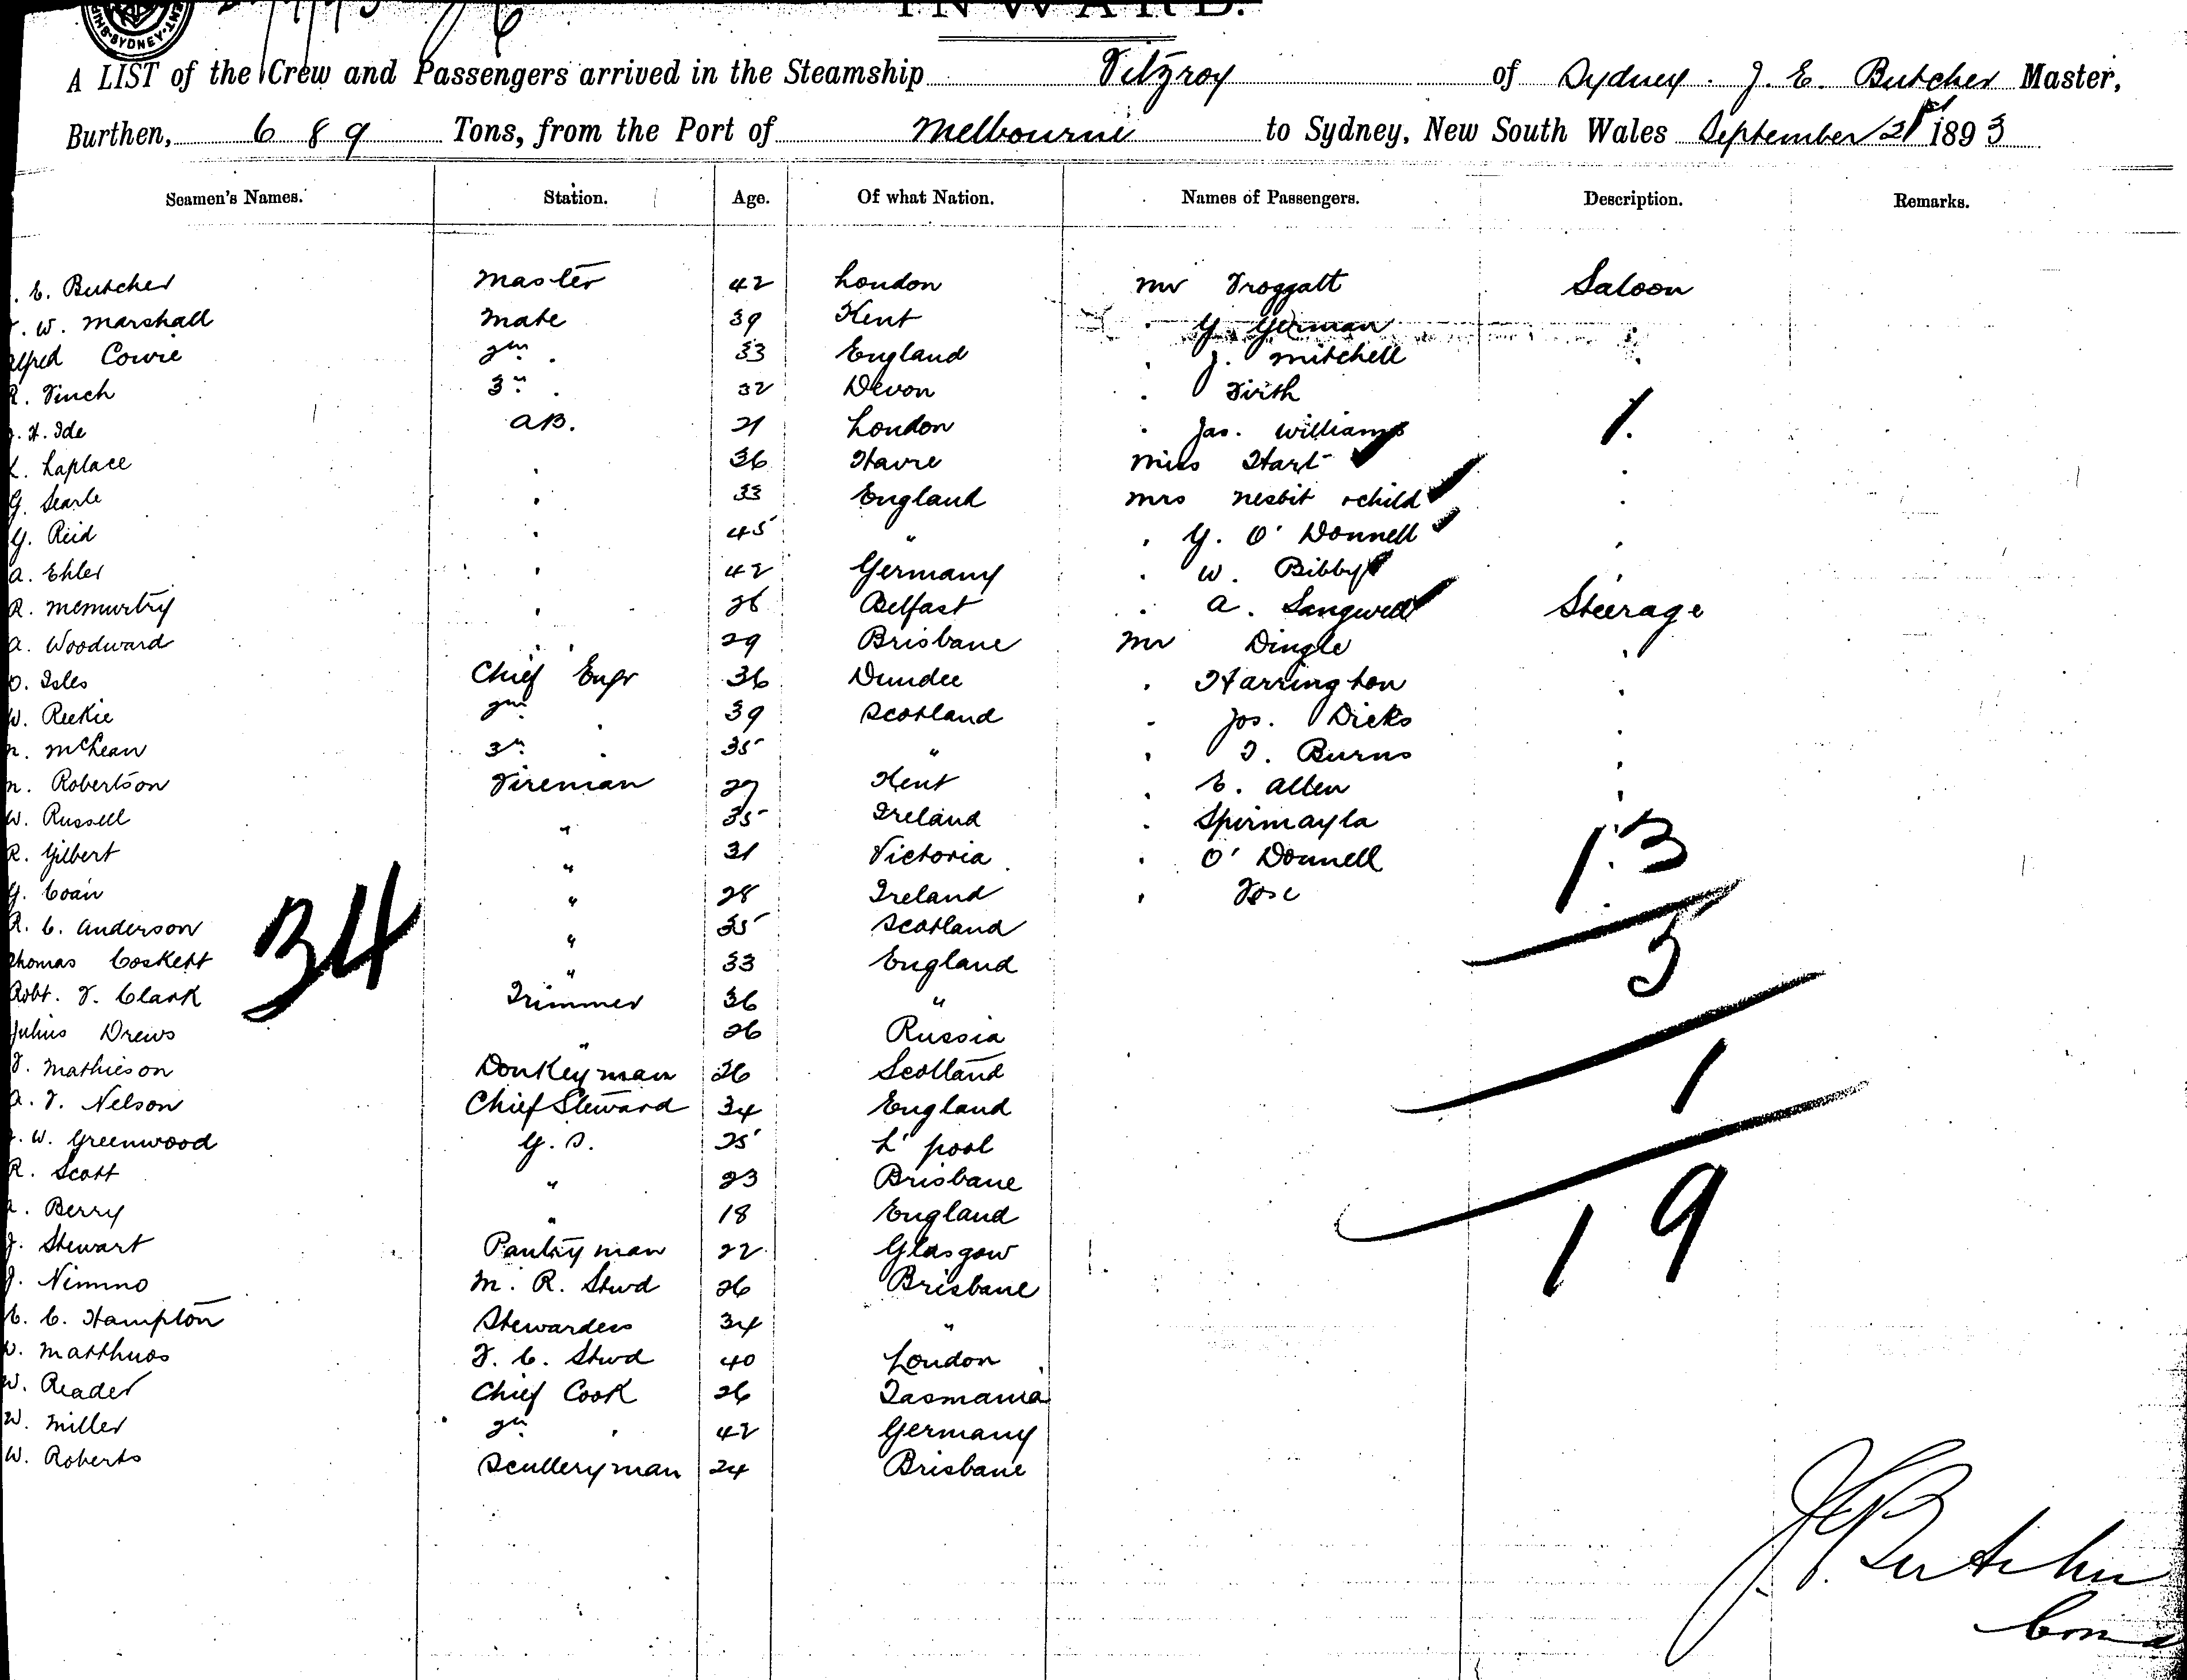 INWARD.
SYDNEY
A LIST of the Crew and Passengers arrived in the Steamship Fitzroy of Sydney. J. E. Butcher Master,
Burthen, 689 Tons, from the Port of Melbourne to Sydney, New South Wales September 21st 1893
Seamen's Names. Station. Age. Of what Nation. Names of Passengers. Description. Remarks.
. E. Butcher Master 42 London Mr Froggatt Saloon
. W. Marshall Mate 39 Kent . G. German .
Alfred Cowie 2nd . 33 England . J. Mitchell .
R. Finch 3rd . 32 Devon . Firth
J. H. Ide AB. 21 London . Jas. Williams 1.
L. Laplace . 36 Havre Miss Hart .
G. Searle . 33 England Mrs Nesbit & child .
G. Reid . 45 " . G. O'Donnell .
A. Ehler . 42 Germany . W. Bibby .
R. McMurtry . 26 Belfast . A. Steerage
A. Woodward . 29 Brisbane Mr Dingle .
D. Isles Chief Engr 36 Dundee . Harrington .
W. Reekie 2nd . 39 Scotland . Jos. Dicks .
n. McLean 3rd . 35 " . T. Burns .
n. Robertson Fireman 27 Kent . E. Allen .
W. Russell " 35 Ireland . Spirmayla
R. Gilbert " 31 Victoria . O'Donnell 13
G. Coan " 28 Ireland .
R. C. Anderson " 35 Scotland
34 5
Thomas Coskett " 33 England
Robt. F. Clark Trimmer 36 "
Julius Drews " 26 Russia
F. Mathieson Donkeyman 26 Scotland 1
A. F. Nelson Chief Steward 34 England
. W. Greenwood G. S. 25 L'pool
R. Scott " 23 Brisbane
. Berry " 18 England 19
J. Stewart Pantryman 22 Glasgow
J. Nimmo M. R. Stwd 26 Brisbane
E. C. Hampton Stewardess 34 "
W. Matthews F. C. Stwd 40 London
W. Reader Chief Cook 26 Tasmania
W. Miller 2nd . 42 Germany
W. Roberts Sculleryman 24 Brisbane
J. E. Butcher